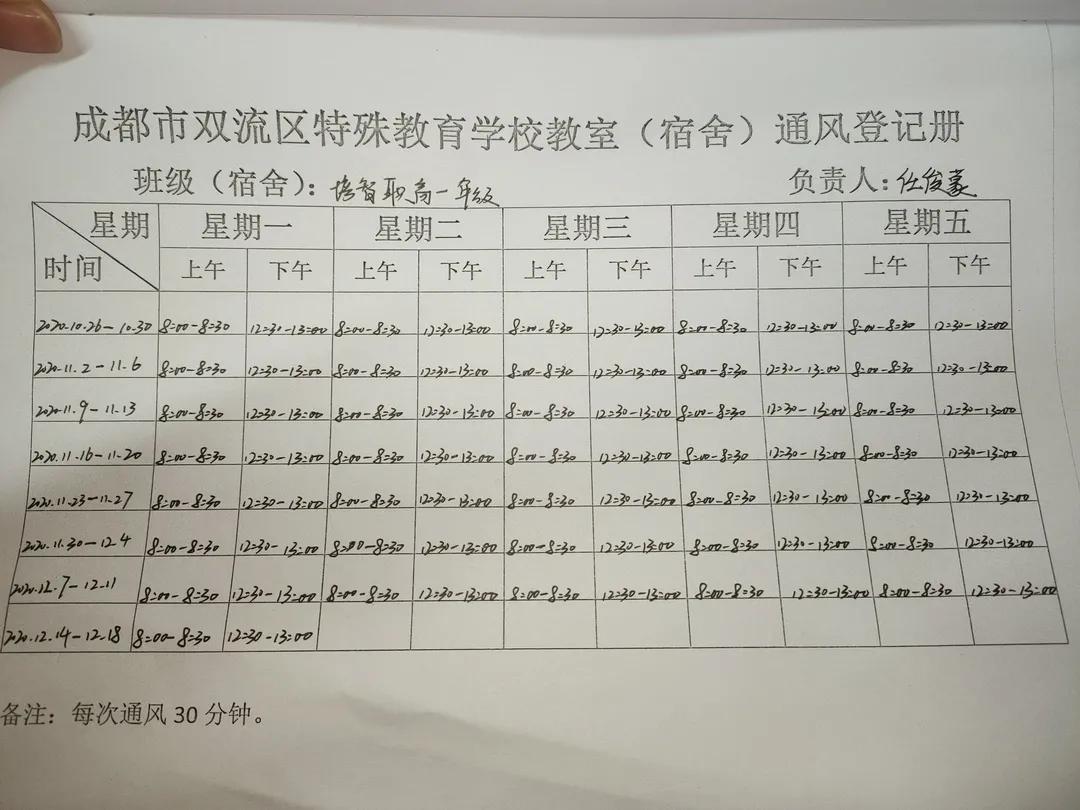 成都市双流区特殊教育学校教室（宿舍）通风登记册
班级（宿舍）：培智职高一年级 负责人：任俊豪
星期 星期一 星期二 星期三 星期四 星期五
时间 上午 下午 上午 下午 上午 下午 上午 下午 上午 下午
2020.10.26-10.30 8:00-8:30 12:30-13:00 8:00-8:30 12:30-13:00 8:00-8:30 12:30-13:00 8:00-8:30 12:30-13:00 8:00-8:30 12:30-13:00
2020.11.2-11.6 8:00-8:30 12:30-13:00 8:00-8:30 12:30-13:00 8:00-8:30 12:30-13:00 8:00-8:30 12:30-13:00 8:00-8:30 12:30-13:00
2020.11.9-11.13 8:00-8:30 12:30-13:00 8:00-8:30 12:30-13:00 8:00-8:30 12:30-13:00 8:00-8:30 12:30-13:00 8:00-8:30 12:30-13:00
2020.11.16-11.20 8:00-8:30 12:30-13:00 8:00-8:30 12:30-13:00 8:00-8:30 12:30-13:00 8:00-8:30 12:30-13:00 8:00-8:30 12:30-13:00
2020.11.23-11.27 8:00-8:30 12:30-13:00 8:00-8:30 12:30-13:00 8:00-8:30 12:30-13:00 8:00-8:30 12:30-13:00 8:00-8:30 12:30-13:00
2020.11.30-12.4 8:00-8:30 12:30-13:00 8:00-8:30 12:30-13:00 8:00-8:30 12:30-13:00 8:00-8:30 12:30-13:00 8:00-8:30 12:30-13:00
2020.12.7-12.11 8:00-8:30 12:30-13:00 8:00-8:30 12:30-13:00 8:00-8:30 12:30-13:00 8:00-8:30 12:30-13:00 8:00-8:30 12:30-13:00
2020.12.14-12.18 8:00-8:30 12:30-13:00
备注：每次通风30分钟。